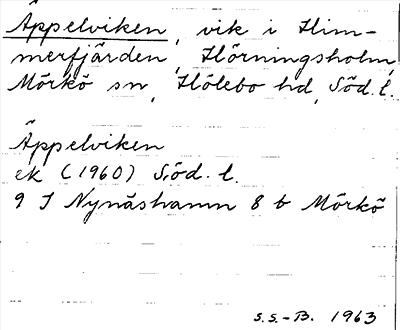 Äppelviken, vik i Him-
merfjärden, Hörningsholm,
Mörkö sn, Hölebo hd, Söd. l.
Äppelviken
ek (1960) Söd. l.
9 I Nynäshamn 8 b Mörkö
S.S.-B. 1963